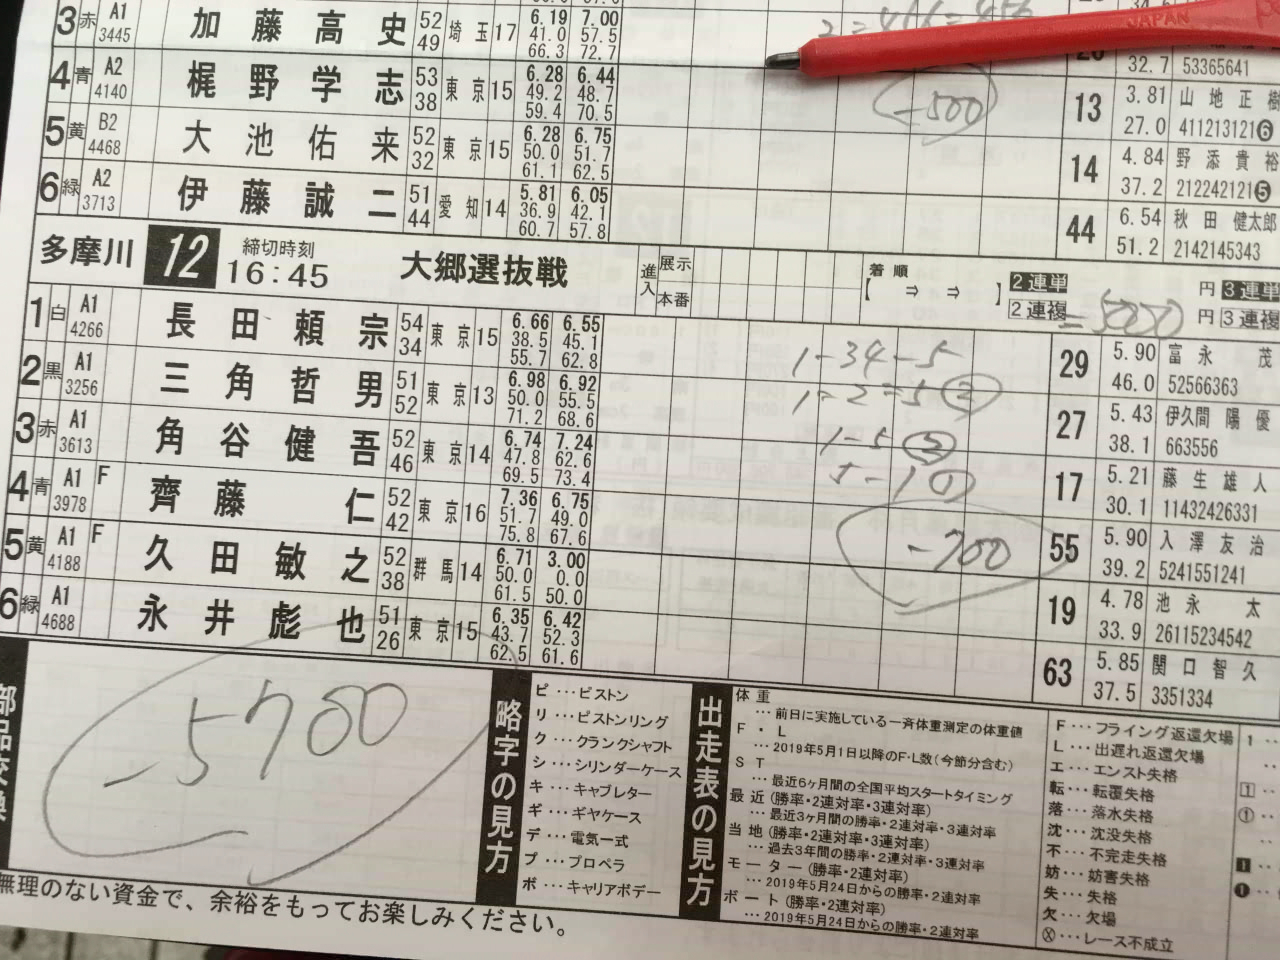 3 赤 A1 3445 加藤高史 52 49 埼玉 17 6.19 41.0 66.3 7.00 57.5 72.7
JAPAN
4 青 A2 4140 梶野学志 53 38 東京 15 6.28 49.2 59.4 6.44 48.7 70.5
32.7 53365641
-500
13 3.81 27.0 山地正樹 411213121❻
5 黄 B2 4468 大池佑来 52 32 東京 15 6.28 50.0 61.1 6.75 51.7 62.5
14 4.84 37.2 野添貴裕 212242121❺
6 緑 A2 3713 伊藤誠二 51 44 愛知 14 5.81 36.9 60.7 6.05 42.1 57.8
44 6.54 51.2 秋田健太郎 2142145343
多摩川 12 締切時刻 16:45 大郷選抜戦 進入 展示 本番 着順 【 ⇒ ⇒ 】 2連単 円 3連単
2連複 円 3連複
1 白 A1 4266 長田頼宗 54 34 東京 15 6.66 38.5 55.7 6.55 45.1 62.8
1-34-5
29 5.90 46.0 富永茂 52566363
2 黒 A1 3256 三角哲男 51 52 東京 13 6.98 50.0 71.2 6.92 55.5 68.6
1=2=5 ②
27 5.43 38.1 伊久間陽優 663556
3 赤 A1 3613 角谷健吾 52 46 東京 14 6.74 47.8 69.5 7.24 62.6 73.4
17 5.21 30.1 藤生雄人 11432426331
4 青 A1 3978 F 齊藤仁 52 42 東京 16 7.36 51.7 75.8 6.75 49.0 67.6
-700
55 5.90 39.2 入澤友治 5241551241
5 黄 A1 4188 F 久田敏之 52 38 群馬 14 6.71 50.0 61.5 3.00 0.0 50.0
19 4.78 33.9 池永太 26115234542
6 緑 A1 4688 永井彪也 51 26 東京 15 6.35 43.7 62.5 6.42 52.3 61.6
63 5.85 37.5 関口智久 3351334
-5700
部品交換
略字の見方
ピ…ピストン
リ…ピストンリング
ク…クランクシャフト
シ…シリンダーケース
キ…キャブレター
ギ…ギヤケース
デ…電気一式
プ…プロペラ
ボ…キャリアボデー
出走表の見方
体重
…前日に実施している一斉体重測定の体重値
F・L
…2019年5月1日以降のF・L数(今節分含む)
ST
…最近6ヶ月間の全国平均スタートタイミング
最近(勝率・2連対率・3連対率)
…最近3ヶ月間の勝率・2連対率・3連対率
当地(勝率・2連対率・3連対率)
…過去3年間の勝率・2連対率・3連対率
モーター(勝率・2連対率)
…2019年5月24日からの勝率・2連対率
ボート(勝率・2連対率)
…2019年5月24日からの勝率・2連対率
F…フライング返還欠場
L…出遅れ返還欠場
エ…エンスト失格
転…転覆失格
落…落水失格
沈…沈没失格
不…不完走失格
妨…妨害失格
失…失格
欠…欠場
Ⓧ…レース不成立
無理のない資金で、余裕をもってお楽しみください。